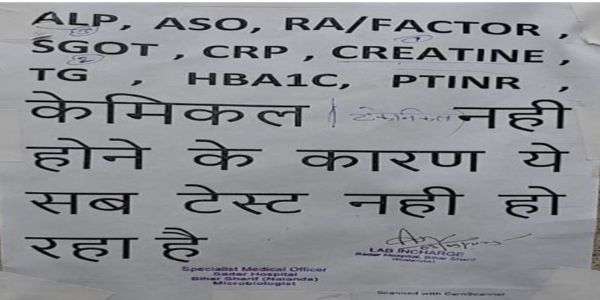 ALP, ASO, RA/FACTOR,
SGOT, CRP, CREATINE,
TG, HBA1C, PTINR,
केमिकल नही
होने के कारण ये
सब टेस्ट नही हो
रहा है
Specialist Medical Officer
Sadar Hospital
Bihar Sharif (Nalanda)
Microbiologist
LAB INCHARGE
Sadar Hospital, Bihar Sharif
(Nalanda)
Scanned with CamScanner